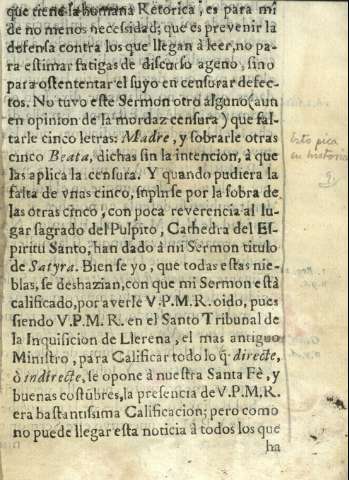 que tiene la humana Retorica, es para mi
de no menos necessidad; que es prevenir la
defensa contra los que llegan à leer, no pa-
ra estimar fatigas de discurso ageno, sino
para ostententar el suyo en censurar defec-
tos. No tuvo este Sermon otro alguno (aun
en opinion de la mordaz censura) que fal-
tarle cinco letras: Madre, y sobrarle otras
cinco Beata, dichas sin la intencion, à que
las aplica la censura. Y quando pudiera la
falta de vnas cinco, suplirse por la sobra de
las otras cinco, con poca reverencia al lu-
gar sagrado del Pulpito, Cathedra del Es-
piritu Santo, han dado à mi Sermon titulo
de Satyra. Bien se yo, que todas estas nie-
blas, se deshazian, con que mi Sermon està
calificado, por averle V.P.M.R. oido, pues
siendo V.P.M.R. en el Santo Tribunal de
la Inquisicion de Llerena, el mas antiguo
Ministro, para Calificar todo lo q̃ directe,
ò indirecte, se opone à nuestra Santa Fè, y
buenas costũbres, la presencia de V.P.M.R.
era bastantissima Calificacion; pero como
no puede llegar esta noticia à todos los que
ha
Esto pica
en historia